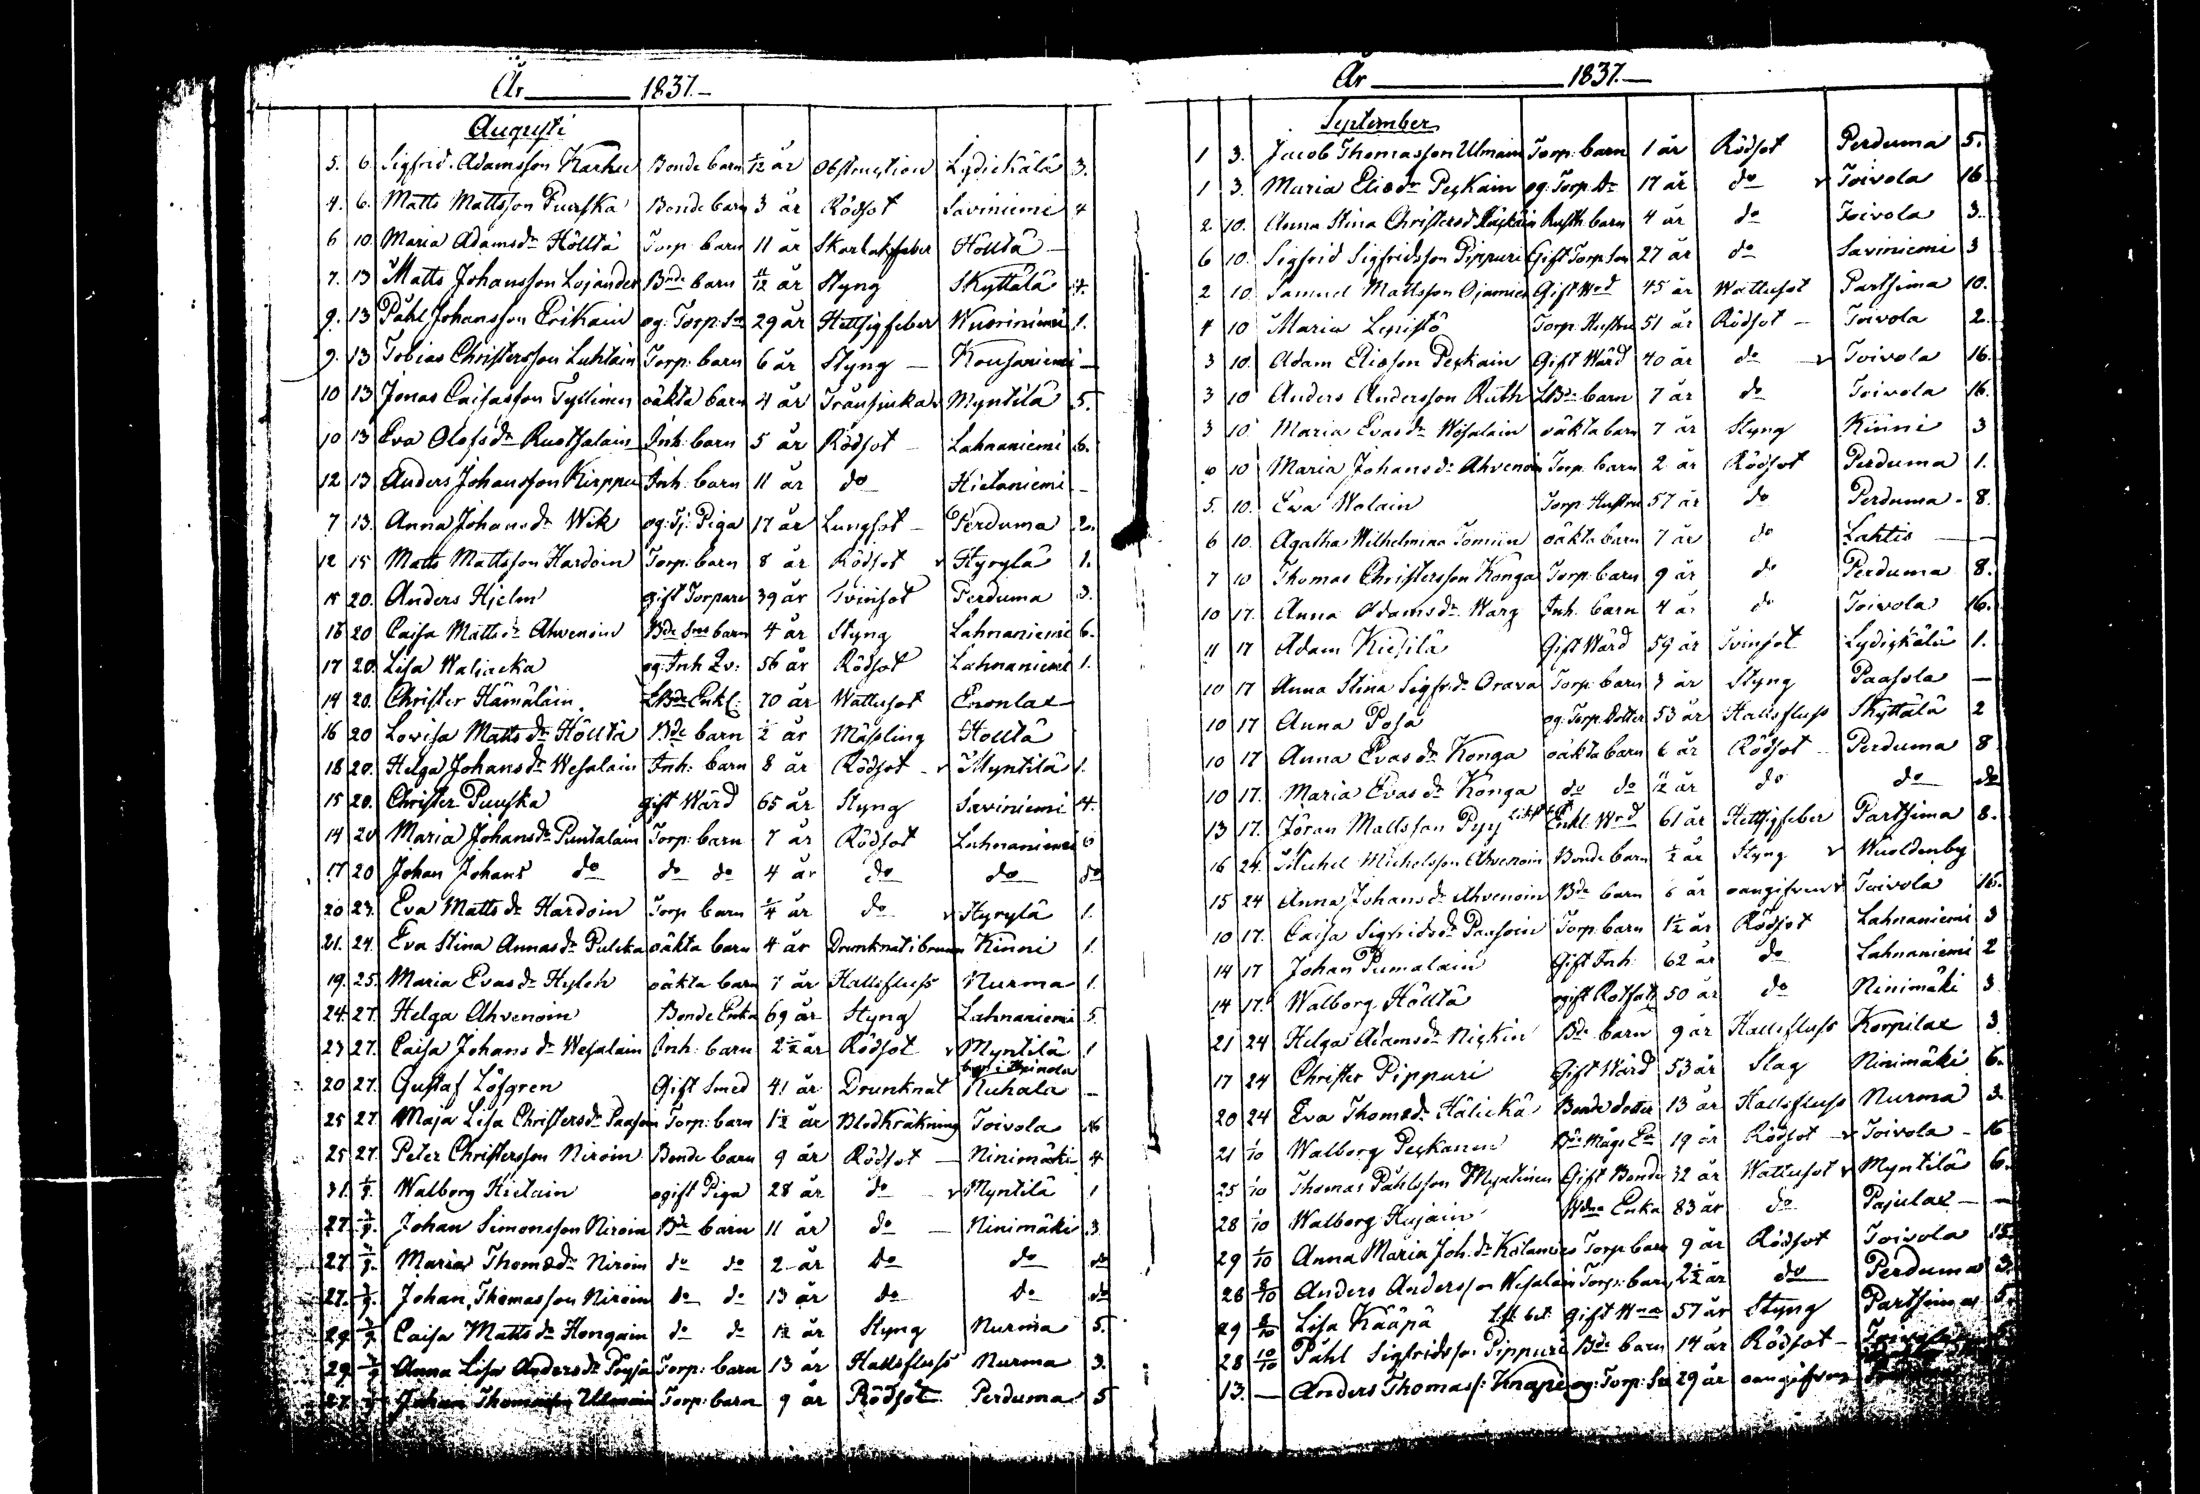 År 1837.
Augusti
5. 6. Sigfrid Adamsson Karhu Bonde barn 1/12 år Obstruction Lydickälä 3.
4. 6. Matts Mattsson Puuska Bonde barn 3 år Rödsot Saviniemi 4
6 10. Maria Adamsdr Hölltä Torp: barn 11 år Skarlaksfeber Hölltä —
7. 13 Matts Johansson Lojander Bnde barn 11/12 år Styng Skyttälä 4.
9. 13 Påhl Johansson Erikain og: Torp: Sn 29 år Hettsigfeber Wuoriniemi 1.
9. 13 Tobias Christersson Luhtain Torp: barn 6 år Styng — Kousaniemi —
10 13 Jonas Caisasson Tyllinen oäkta barn 4 år Transjuka Myntilä 5.
10 13 Eva Olofsdr Ruotsalain Inh: barn 5 år Rödsot — Lahnaniemi 6.
12 13 Anders Johansson Kirppu Inh: barn 11 år do Hietaniemi —
7 13. Anna Johansdr Wik og: Tj: Piga 17 år Lungsot — Perduma 2.
12 15 Matts Mattsson Hardoin Torp: barn 8 år Rödsot v Hyrylä 1.
15 20. Anders Hjelm gift Torpare 39 år Tvinsot Perduma 3.
16 20 Caisa Mattsdr Ahvenoin Bde Sns barn 4 år Styng Lahnaniemi 6.
17 20. Lisa Waljacka og: Inh Qv: 56 år Rödsot Lahnaniemi 1.
14 20. Christer Hämäläin LBde Enkl: 70 år Wattusot Enonlax
16 20 Lovisa Mattsdr Hölltä Bde barn 1/2 år Mässling Hölltä
18 20. Helga Johansdr Wesalain Inh: barn 8 år Rödsot — v Myntilä 1.
15 20. Christer Puuska gift Wärd 65 år Styng Saviniemi 4.
14 20 Maria Johansdr Puntalain Torp: barn 7 år Rödsot Lahnaniemi 6
17 20 Johan Johans do do do 4 år do do do
20 23. Eva Mattsdr Hardoin Torp barn 1/4 år do v Hyrylä 1.
21. 24. Eva Stina Annasdr Pulcka oäkta barn 4 år Drunknat i brunn Kinni 1.
19. 25. Maria Evasdr Hyleh oäkta barn 7 år Hallsfluss Nurma 1.
24. 27. Helga Ahvenoin Bonde Enka 69 år Styng Lahnaniemi 5.
23 27. Caisa Johansdr Wesalain Inh: barn 2 1/2 år Rödsot v Myntilä 1
20 27. Gustaf Löfgren Gift Smed 41 år Drunknat Nuhala —
25 27. Maja Lisa Christersdr Paasoin Torp: barn 1 1/2 år Blodkräkning Toivola 16
25 27. Peter Christersson Niroin Bonde barn 9 år Rödsot — Ninimäki 4
31. 1/9. Walborg Hietain ogift Piga 28 år do v Myntilä 1
27. 3/9. Johan Simonsson Niroin Bde barn 11 år do — Ninimäki 3
27. 3/9. Maria Thomædr Niroin do do 2 år do do do
27. 3/9. Johan Thomasson Niroin do do 13 år do do do
29. 3/9. Caisa Mattsdr Hongain do do 1 1/2 år Styng Nurma 5.
29. 3/9 Anna Lisa Andersdr Torp: barn 13 år Hallsfluss Nurma 3.
27. Johan Thomasson Ulmain Torp: barn 9 år Rödsot Perduma 5
År 1837.
September
1 3. Jacob Thomasson Ulmain Torp: barn 1 år Rödsot Perduma 5.
1 3. Maria Eliædr Peskain og: Torp: Dr 17 år do v Toivola 16
2 10. Anna Stina Christersd Rusth: barn 4 år do Toivola 3.
6 10. Sigfrid Sigfridsson Pippuri Gift Torp: Son 27 år do Saviniemi 3
2 10 Samuel Mattsson Ojamies Gift Wrd 45 år Wattusot Partsima 10.
4 10 Maria Lepistö Torp: Hustru 51 år Rödsot — Toivola 2.
3 10. Adam Eliæson Peskain Gift Wärd 40 år do v Toivola 16.
3 10 Anders Andersson Ruth LBde barn 7 år do Toivola 16.
3 10. Maria Evasdr Wesalain oäkta barn 7 år Styng Kinni 3
6 10 Maria Johansdr Ahvenoin Torp: barn 2 år Rödsot Perduma 1.
5. 10. Eva Wolain Torp: Hustru 57 år do Perduma 8.
6 10. Agatha Wilhelmina Tomiin oäkta barn 7 år do Lahtis —
7 10 Thomas Christersson Konga Torp: barn 9 år do Perduma 8.
10 17. Anna Adamsdr Warg Inh: barn 4 år do Toivola 16.
11 17 Adam Kiesilä Gift Wärd 59 år Tvinsot Lydickälä 1.
10 17 Anna Stina Sigfr:dr Orava Torp: barn 3 år Styng Paasola —
10 17 Anna Posa og: Torp: dotter 53 år Hallsfluss Skyttälä 2
10 17 Anna Evasdr Konga oäkta barn 6 år Rödsot — Perduma 8
10 17. Maria Evasdr Konga do do 11/12 år do do do
13 17. Jöran Mattsson Pyy Enkl: Wrd 61 år Hettsigfeber Partsima 8.
16 24. Michel Michelsson Ahvenoin Bonde barn 1/2 år Styng v Wuoldenby
15 24 Anna Johansdr Ahvenoin Bde barn 6 år oangifven v Toivola 16.
10 17. Caisa Sigfridsdr Paasoin Torp: barn 1 1/2 år Rödsot Lahnaniemi 3
14 17 Johan Pumalain Gift Inh: 62 år do Lahnaniemi 2
14 17. Walborg Hölltä ogift Rotfatt 50 år do Ninimäki 3
21 24 Helga Adamsdr Niskin Bde barn 9 år Hallsfluss Korpilax 3
17 24 Christer Pippuri Gift Wärd 53 år Slag Ninimäki 6.
20 24 Eva Thomædr Hälickä Bonde dotter 13 år Hallsfluss Nurma 3.
21 1/10 Walborg Peskanen Bde Mågs Ea 19 år Rödsot — v Toivola — 16
25 1/10 Thomas Påhlsson Myntinen Gift Bonde 32 år Wattusot v Myntilä 6.
28 1/10 Walborg Kujain Wdns Enka 83 år do Pajulax —
29 1/10 Anna Maria Joh.dr Torp barn 9 år Rödsot Toivola 15
28 8/10 Anders Andersson Wesalain Torp: barn 2 1/2 år do Perduma 3.
29 8/10 Lisa Kääpä Gift Wna 57 år Styng Partsima 5.
28 10/10 Påhl Sigfridsson Pippuri Bde barn 14 år Rödsot —
13. — Anders Thomass: Knape og: Torp: Sn 29 år oangifven